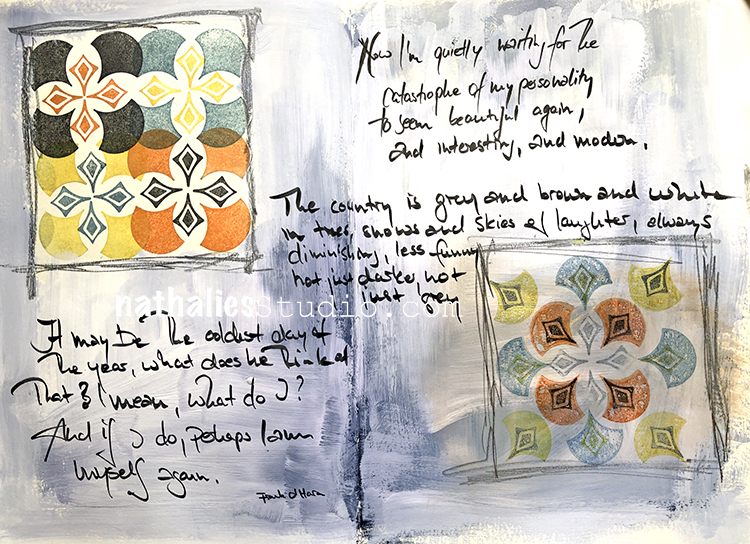 Now I'm quietly waiting for the
catastrophe of my personality
to seem beautiful again,
and interesting, and modern.
The country is grey and brown and white
in trees, snows and skies of laughter, always
diminishing, less funny
not just darker, not
just grey
It may be the coldest day of
the year, what does he think of
that? I mean, what do I?
And if I do, perhaps I am
myself again.
Frank O'Hara
nathaliesstudio.com